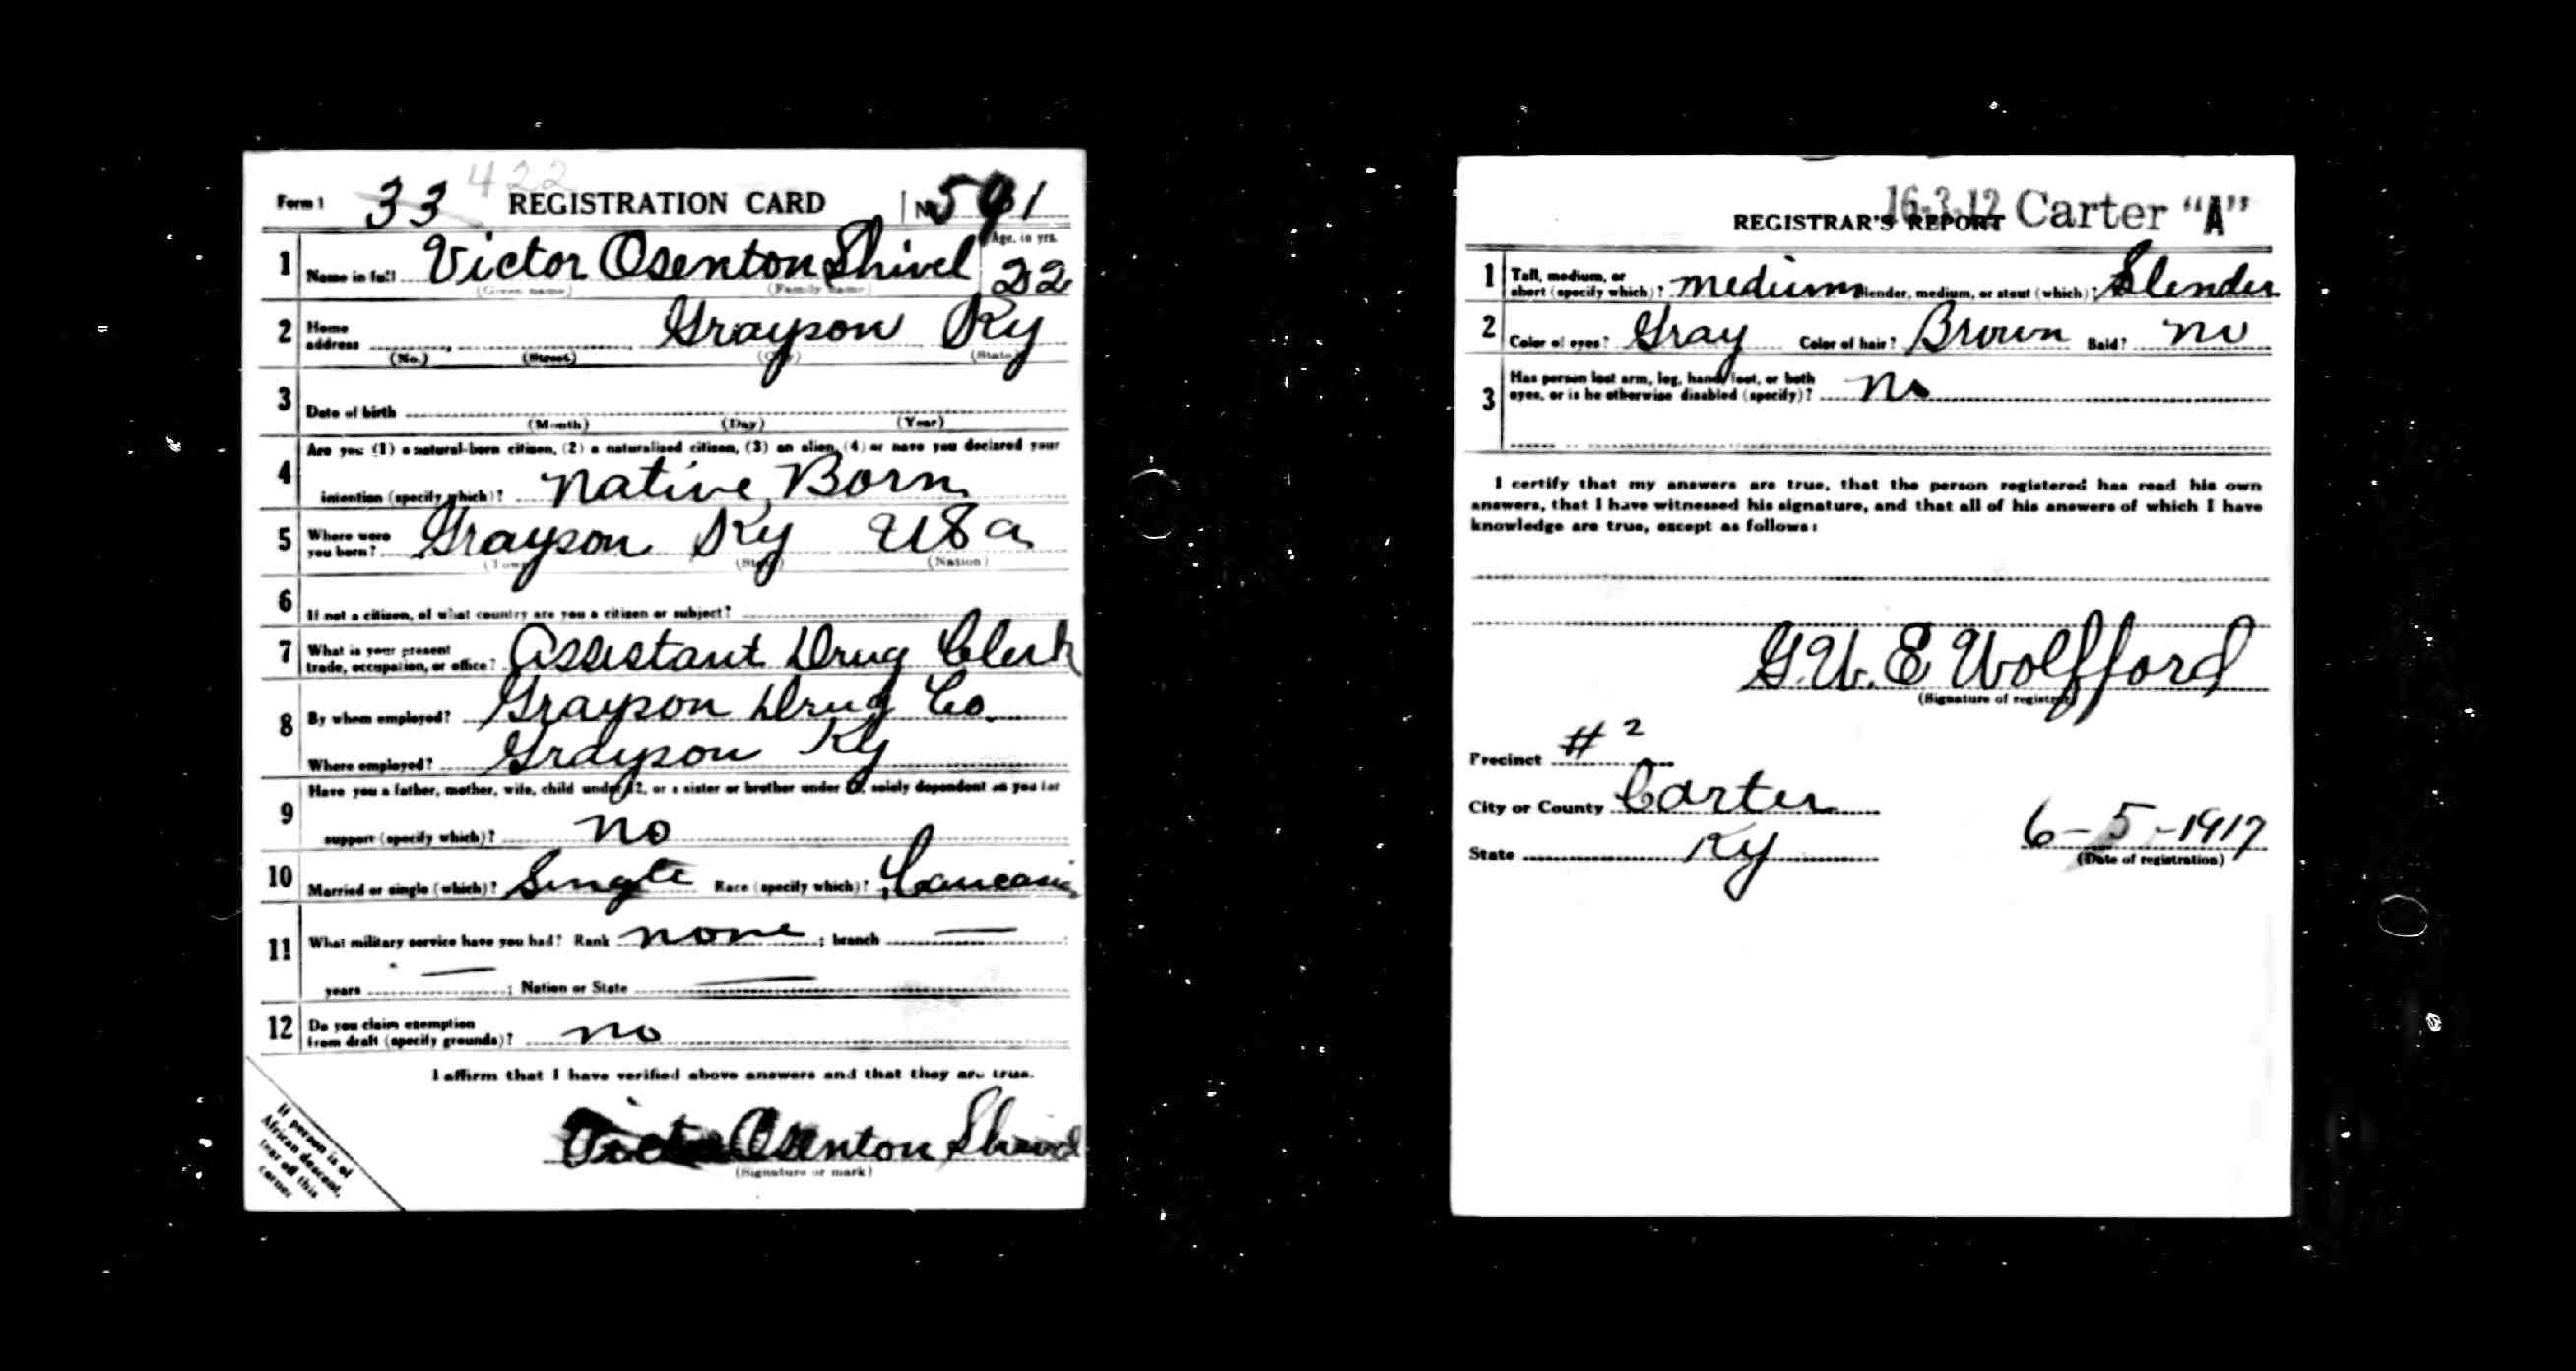 422
Form 1 33 REGISTRATION CARD No. 591
1 Name in full Victor Osenton Shivel Age, in yrs. 22
(Given name) (Family name)
2 Home address Grayson Ky
(No.) (Street) (City) (State)
3 Date of birth
(Month) (Day) (Year)
Are you (1) a natural-born citizen, (2) a naturalized citizen, (3) an alien, (4) or have you declared your
4 intention (specify which)? Native Born
5 Where were you born? Grayson Ky USA
(Town) (State) (Nation)
6 If not a citizen, of what country are you a citizen or subject?
7 What is your present trade, occupation, or office? Assistant Drug Clerk
8 By whom employed? Grayson Drug Co.
Where employed? Grayson Ky
9 Have you a father, mother, wife, child under 12, or a sister or brother under 12, solely dependent on you for
support (specify which)? No
10 Married or single (which)? Single Race (specify which)? Caucasian
11 What military service have you had? Rank none ; branch —
years — ; Nation or State —
12 Do you claim exemption from draft (specify grounds)? no
I affirm that I have verified above answers and that they are true.
Victor Osenton Shivel
(Signature or mark)
If person is of
African descent,
tear off this
corner
16-3-12 Carter "A"
REGISTRAR'S REPORT
1 Tall, medium, or short (specify which)? medium Slender, medium, or stout (which)? Slender
2 Color of eyes? Gray Color of hair? Brown Bald? no
3 Has person lost arm, leg, hand, foot, or both
eyes, or is he otherwise disabled (specify)? no
I certify that my answers are true, that the person registered has read his own
answers, that I have witnessed his signature, and that all of his answers of which I have
knowledge are true, except as follows:
G. W. E Wolfford
(Signature of registrar)
Precinct # 2
City or County Carter
State Ky
6-5-1917
(Date of registration)